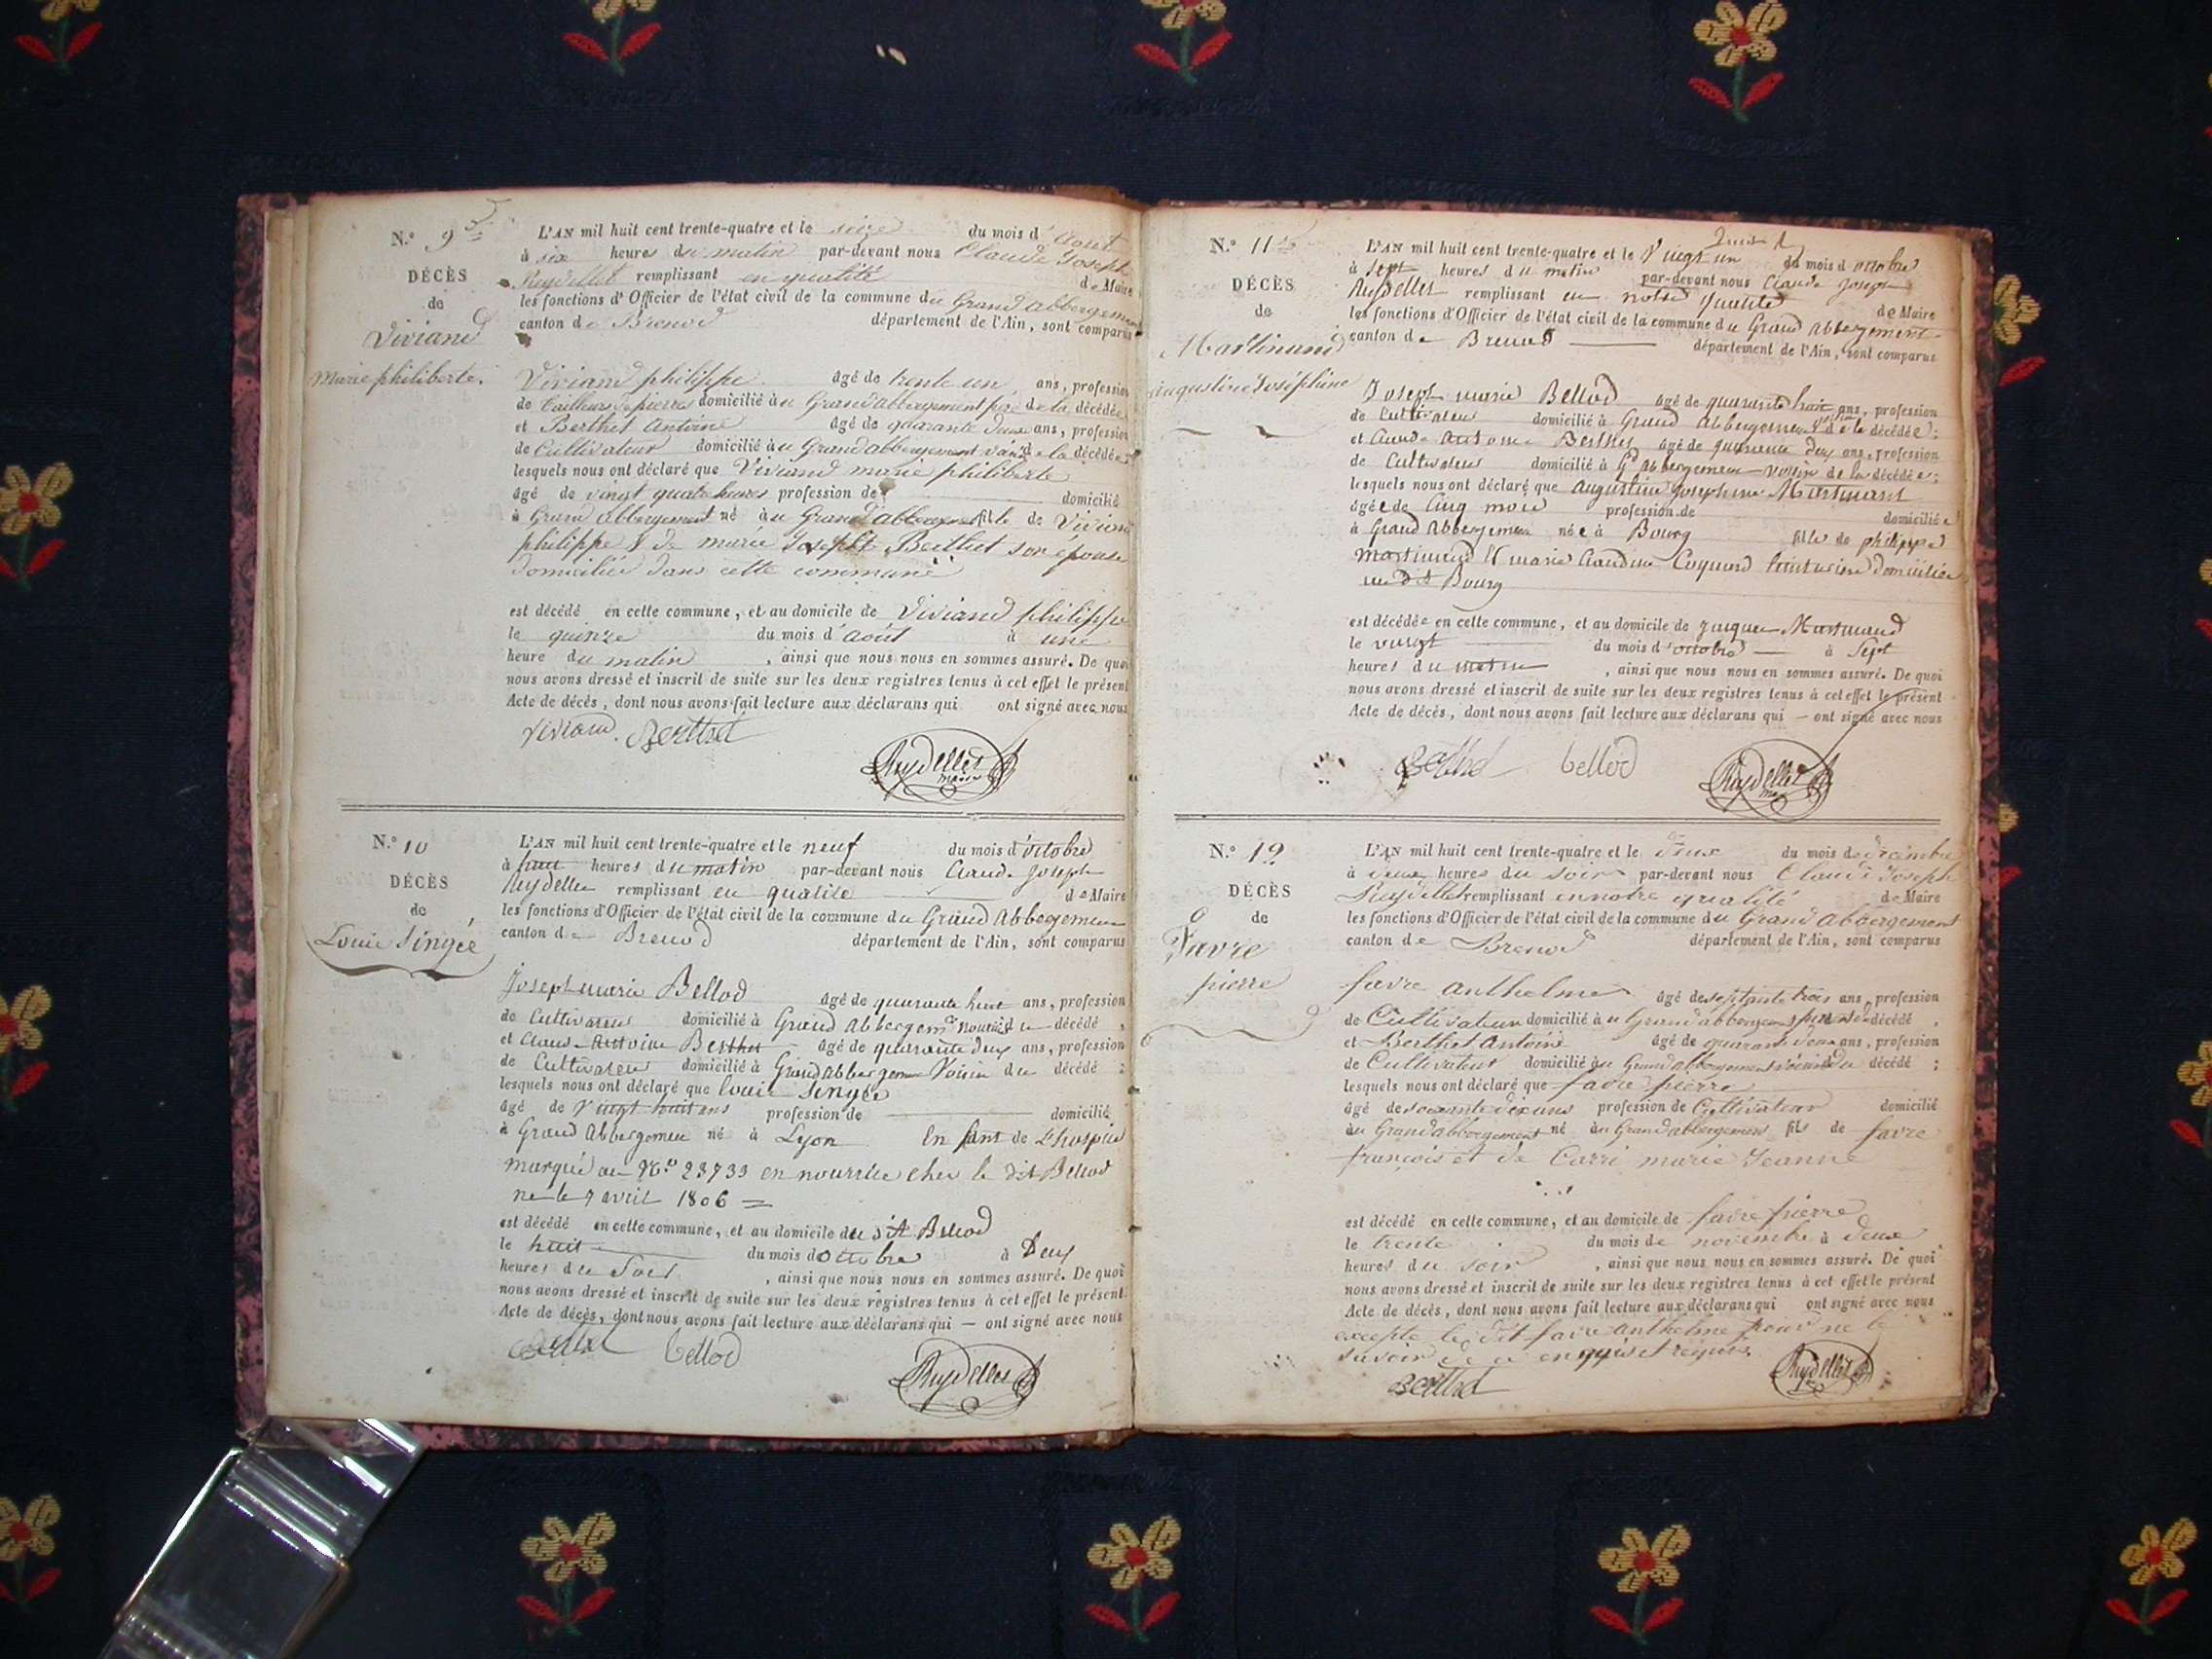 N.° 9
DÉCÈS
de
Viviand
Marie philiberte.
L'AN mil huit cent trente-quatre et le seize du mois d'Aout
à six heures du matin par-devant nous Claude Joseph
Ruydellet remplissant en qualité de Maire
les fonctions d'Officier de l'état civil de la commune du Grand abbergement
canton de Brenod département de l'Ain, sont comparus
Viviand philippe âgé de trente un ans, profession
de tailleur de pierres domicilié au Grand abbergement père de la décédée
et Berthet Antoine âgé de quarante deux ans, profession
de Cultivateur domicilié au Grand abbergement de la décédée
lesquels nous ont déclaré que Viviand marie philiberte
âgé de vingt quatre heures profession de domicilié
à Grand abbergement né au Grand abbergement fille de Viviand
philippe & de marie Josephte Berthet son épouse
domiciliée dans cette commune
est décédé en cette commune, et au domicile de Viviand philippe
le quinze du mois d'août à une
heure du matin, ainsi que nous nous en sommes assuré. De quoi
nous avons dressé et inscrit de suite sur les deux registres tenus à cet effet le présent
Acte de décès, dont nous avons fait lecture aux déclarans qui ont signé avec nous
Viviand. Berthet
Ruydellet
maire
N.° 10
DÉCÈS
de
Louis Singée
L'AN mil huit cent trente-quatre et le neuf du mois d'octobre
à huit heures du matin par-devant nous Claude Joseph
Ruydellet remplissant en qualité de Maire
les fonctions d'Officier de l'état civil de la commune du Grand Abbergement
canton de Brenod département de l'Ain, sont comparus
Joseph marie Bellod âgé de quarante huit ans, profession
de Cultivateur domicilié à Grand Abbergemt décédé,
et Claude Antoine Berthet âgé de quarante deux ans, profession
de Cultivateur domicilié à Grand Abbergement Voisin du décédé;
lesquels nous ont déclaré que louis Singée
âgé de Vingt huit ans profession de domicilié
à Grand Abbergement né à Lyon Enfant de L'hospice
marqué au N.° 23733 en nourrice chez le dit Bellod
né le 7 avril 1806
est décédé en cette commune, et au domicile du dit Bellod
le huit du mois d'octobre à Deux
heures du Soir, ainsi que nous nous en sommes assuré. De quoi
nous avons dressé et inscrit de suite sur les deux registres tenus à cet effet le présent
Acte de décès, dont nous avons fait lecture aux déclarans qui — ont signé avec nous
Berthet bellod
Ruydellet
N.° 11
DÉCÈS
de
Martinand
augustine Joséphine
L'AN mil huit cent trente-quatre et le Vingt un du mois d'octobre
à Sept heures du matin par-devant nous Claude Joseph
Ruydellet remplissant en notre qualité de Maire
les fonctions d'Officier de l'état civil de la commune du Grand Abbergement
canton de Brenod département de l'Ain, sont comparus
Joseph marie Bellod âgé de quarante huit ans, profession
de Cultivateur domicilié à Grand Abbergement de la décédée;
et Claude Antoine Berthet âgé de quarante deux ans, profession
de Cultivateur domicilié à Gd Abbergement voisin de la décédée;
lesquels nous ont déclaré que Augustine Josephine Martinand
âgée de Cinq mois profession de domiciliée
à Grand Abbergement née à Bourg fille de philippe
Martinand & marie Claudine Coquard domiciliés
Bourg
est décédée en cette commune, et au domicile de Jacques Martinand
le vingt du mois d'octobre à Sept
heures du matin, ainsi que nous nous en sommes assuré. De quoi
nous avons dressé et inscrit de suite sur les deux registres tenus à cet effet le présent
Acte de décès, dont nous avons fait lecture aux déclarans qui — ont signé avec nous
Berthet bellod
Ruydellet
N.° 12
DÉCÈS
de
Favre
pierre
L'AN mil huit cent trente-quatre et le Deux du mois de décembre
à deux heures du soir par-devant nous Claude Joseph
Ruydellet remplissant en notre qualité de Maire
les fonctions d'Officier de l'état civil de la commune du Grand Abbergement
canton de Brenod département de l'Ain, sont comparus
favre Anthelme âgé de septante trois ans, profession
de Cultivateur domicilié au Grand abbergement décédé,
et Berthet Antoine âgé de quarante deux ans, profession
de Cultivateur domicilié au Grand abbergement voisin du décédé;
lesquels nous ont déclaré que favre pierre
âgé de soixante dix ans profession de Cultivateur domicilié
au Grand abbergement né au Grand abbergement fils de favre
françois et de Carri marie Jeanne
est décédé en cette commune, et au domicile de favre pierre
le trente du mois de novembre à deux
heures du soir, ainsi que nous nous en sommes assuré. De quoi
nous avons dressé et inscrit de suite sur les deux registres tenus à cet effet le présent
Acte de décès, dont nous avons fait lecture aux déclarans qui ont signé avec nous
excepté le dit favre anthelme pour ne le
savoir de ce enquis et requis.
Berthet
Ruydellet